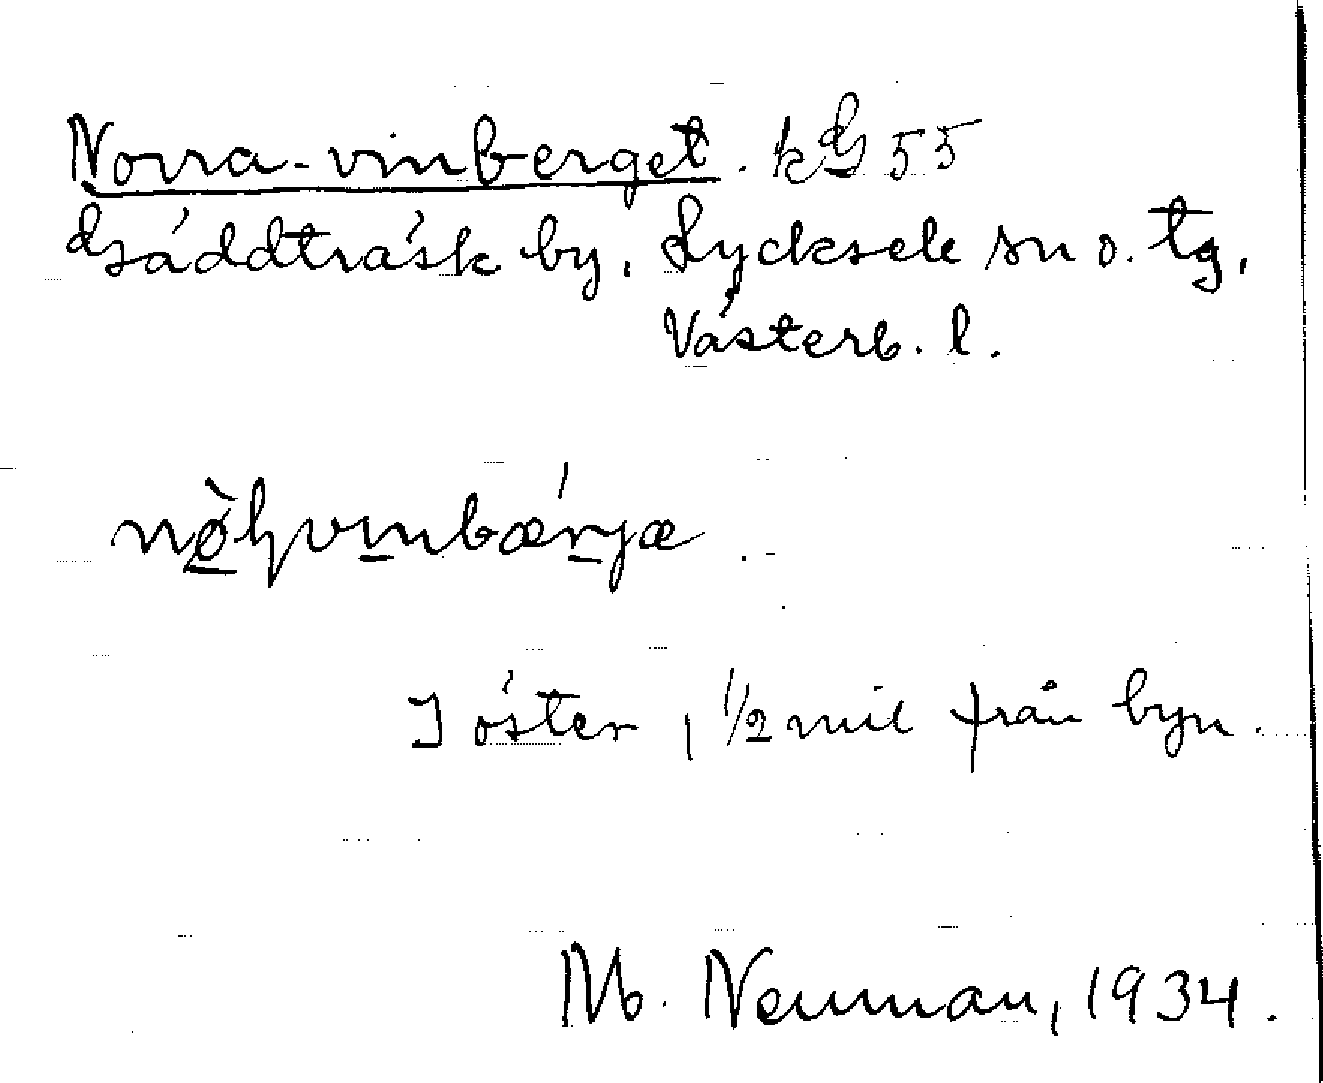 Norra-vinberget. kG 55
Gäddträsk by, Lycksele sn o. tg,
Västerb. l.
nø̀hvinbærjæ
I öster, 1/2 mil från byn.
M. Neuman, 1934.